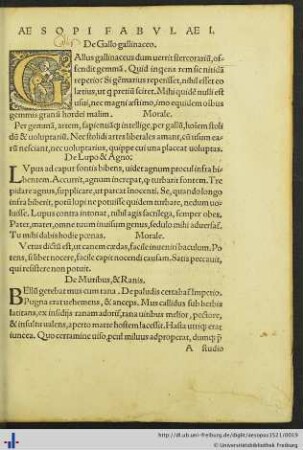 AESOPI FABVLAE I.
De Gallo gallinaceo.
GAllus gallinaceus dum uertit stercorariũ, of-
fendit gemmã. Quid inquiens rem sic nitidã
reperio? Si gẽmarius reperisset, nihil esset eo
lætius, ut q̃ pretiũ sciret. Mihi quidẽ nulli est
usui, nec magni æstimo, imo equidem oĩbus
gemmis granũ hordei malim. Morale.
Per gemmã, artem, sapientiãq̃ intellige, per gallũ, hoĩem stoli
dũ & uoluptariũ. Nec stolidi artes liberales amant, cũ usum ea-
rũ nesciant, nec uoluptarius, quippe cui una placeat uoluptas.
De Lupo & Agno.
LVpus ad caput fontis bibens, uidet agnum procul infra bi
bentem. Accurrit, agnum increpat, q̃ turbarit fontem. Tre
pidare agnus, supplicare, ut parcat innocenti. Se, quando longe
infra biberit, potũ lupi ne potuisse quidem turbare, nedum uo-
luisse. Lupus contra intonat, nihil agis sacrilega, semper obes,
Pater, mater, omne tuum inuisum genus, sedulo mihi aduersat̃.
Tu mihi dabis hodie pœnas. Morale.
Vetus dictũ est, ut canem cædas, facile inueniri baculum. Po
tens, si libet nocere, facile capit nocendi causam. Satis peccauit,
qui resistere non potuit.
De Muribus, & Ranis.
BEllũ gerebat mus cum rana. De paludis certabat̃ Imperio.
Pugna erat uehemens, & anceps. Mus callidus sub herbis
latitans, ex insidijs ranam adorit̃, rana uiribus melior, pectore,
& insultu ualens, aperto marte hostem lacessit. Hasta utriq̃ erat
iuncea. Quo certamine uiso, procul miluus adproperat, dumq̃ p̃
A studio
http://dl.ub.uni-freiburg.de/diglit/aesopus1521/0019
© Universitätsbibliothek Freiburg